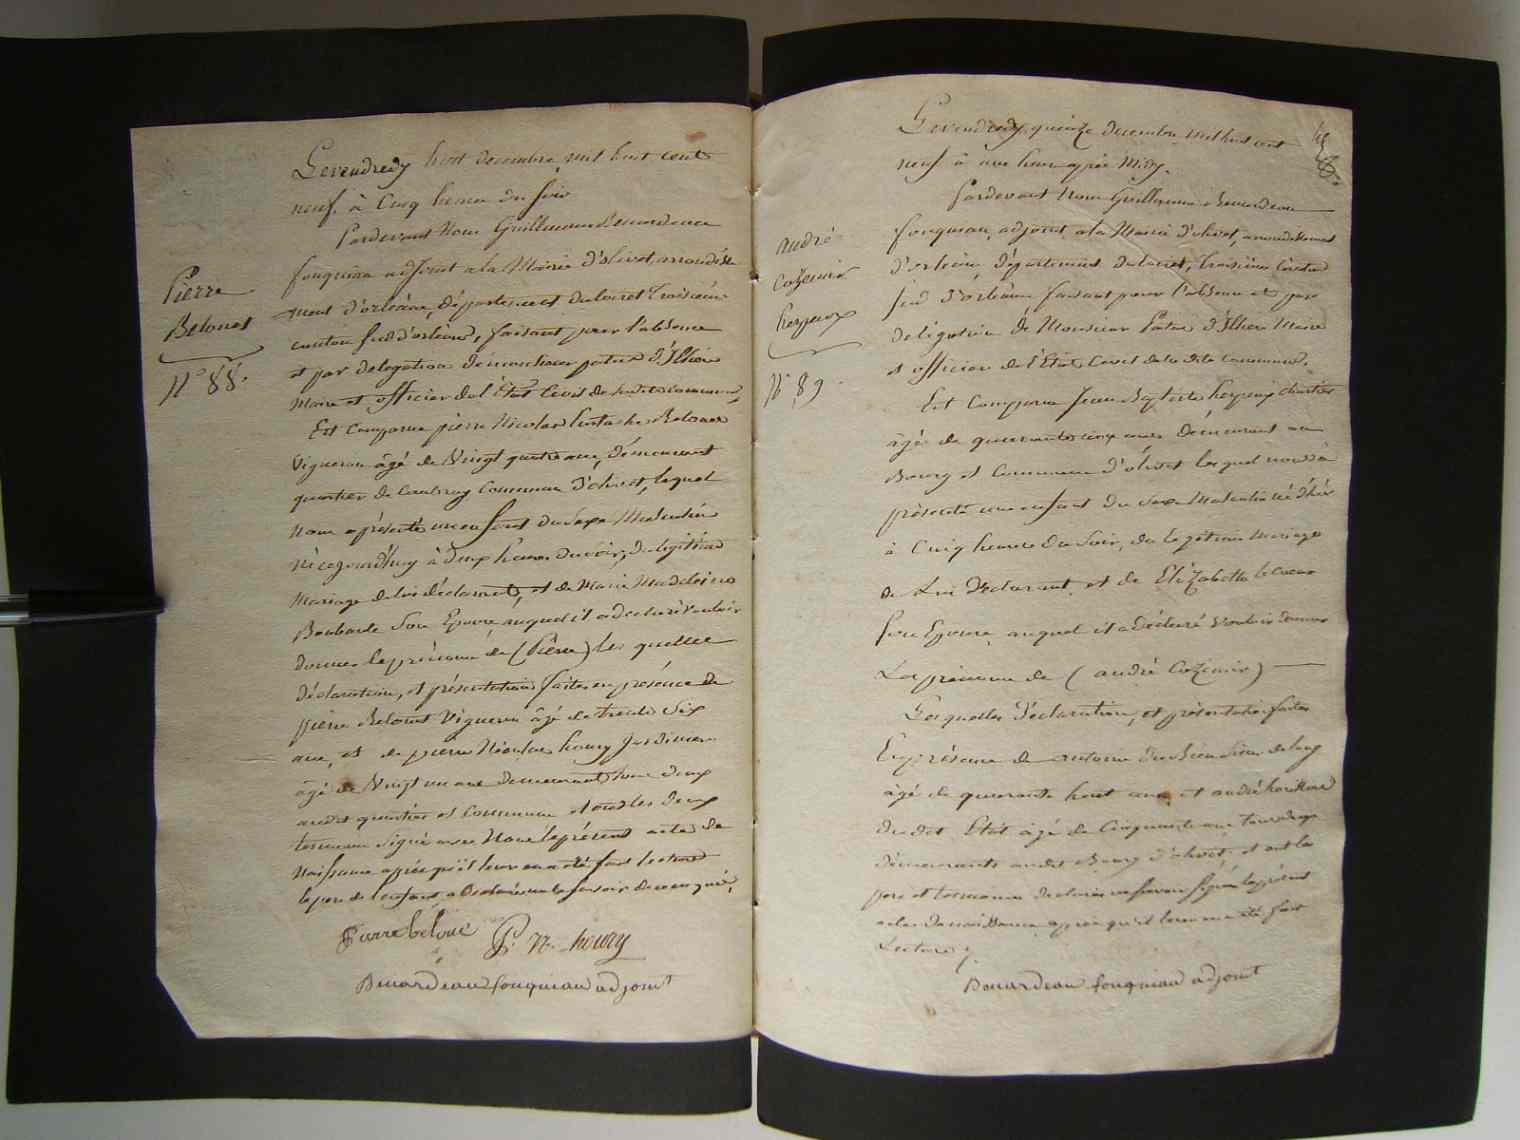 Pierre
Belouet
N° 88.
Le vendredy huit decembre mil huit cent
neuf. à Cinq heures du soir
Pardevant Nous Guillaume Benardeau
fouquiau adjoint a la Mairie d'olivet, arrondisse
ment d'orleans, département du loiret troisieme
canton sud d'orleans, faisant pour l'absence
et par delegation de monsieur d'Illiers
Maire et officier de l'État Civil de commune,
Est Comparu pierre Nicolas Eustache Belouet
Vigneron âgé de Vingt quatre ans, demeurant
quartier de Caubray Commune d'olivet, lequel
Nous a présenté un enfant du sexe Masculin
né cejourd'huy à deux heures du soir, du legitime
Mariage de lui déclarant, et de Marie Madeleine
son Epouse, auquel il a declaré vouloir
donner le prénom de (Pierre) les quelles
déclaration, et présentation faites en présence de
pierre Belouet Vigneron âgé de trente six
ans, et de pierre Nicolas houry Jardinier
âgé de Vingt un ans demeurant tous deux
audit quartier et Commune et ont les deux
temoins signé avec Nous le présent acte de
Naissance après qu'il leur en a été fait lecture
le pere de l'enfant a declaré ne le savoir de ce enquis,
Pierre béloué P. N. houry
Benardeau fouquiau adjoint
andré
Cazimir
herpeux
N° 89.
Le vendredy quinze decembre mil huit cent
neuf à une heure après Midy.
Pardevant Nous Guillaume Benardeau
fouquiau, adjoint a la Mairie d'olivet, arrondissement
d'orleans, Département du loiret, troisieme Canton
sud d'orleans faisant pour l'absence et par
delegation de Monsieur d'Illiers Maire
et officier de l'État Civil de la dite Commune.
Est Comparu Jean Baptiste herpeux
âgé de quarante cinq ans Demeurant au
Bourg et Commune d'olivet lequel nous a
présenté un enfant du sexe Masculin né d'hier
à Cinq heures du soir, du legitime Mariage
de Lui Déclarant, et de Elizabeth
son Epouse, auquel il a Déclaré vouloir donner
Les prénoms de (andré Cazimir)
Les quelles Déclaration, et présentation faites
En présence de antoine
âgé de quarante huit ans et andré
dudit Etat âgé de Cinquante ans tous deux
demeurants audit Bourg d'olivet, et ont le
pere et temoins declaré ne savoir signer le présent
acte de naissance après qu'il leur en a été fait
Lecture.
Benardeau fouquiau adjoint